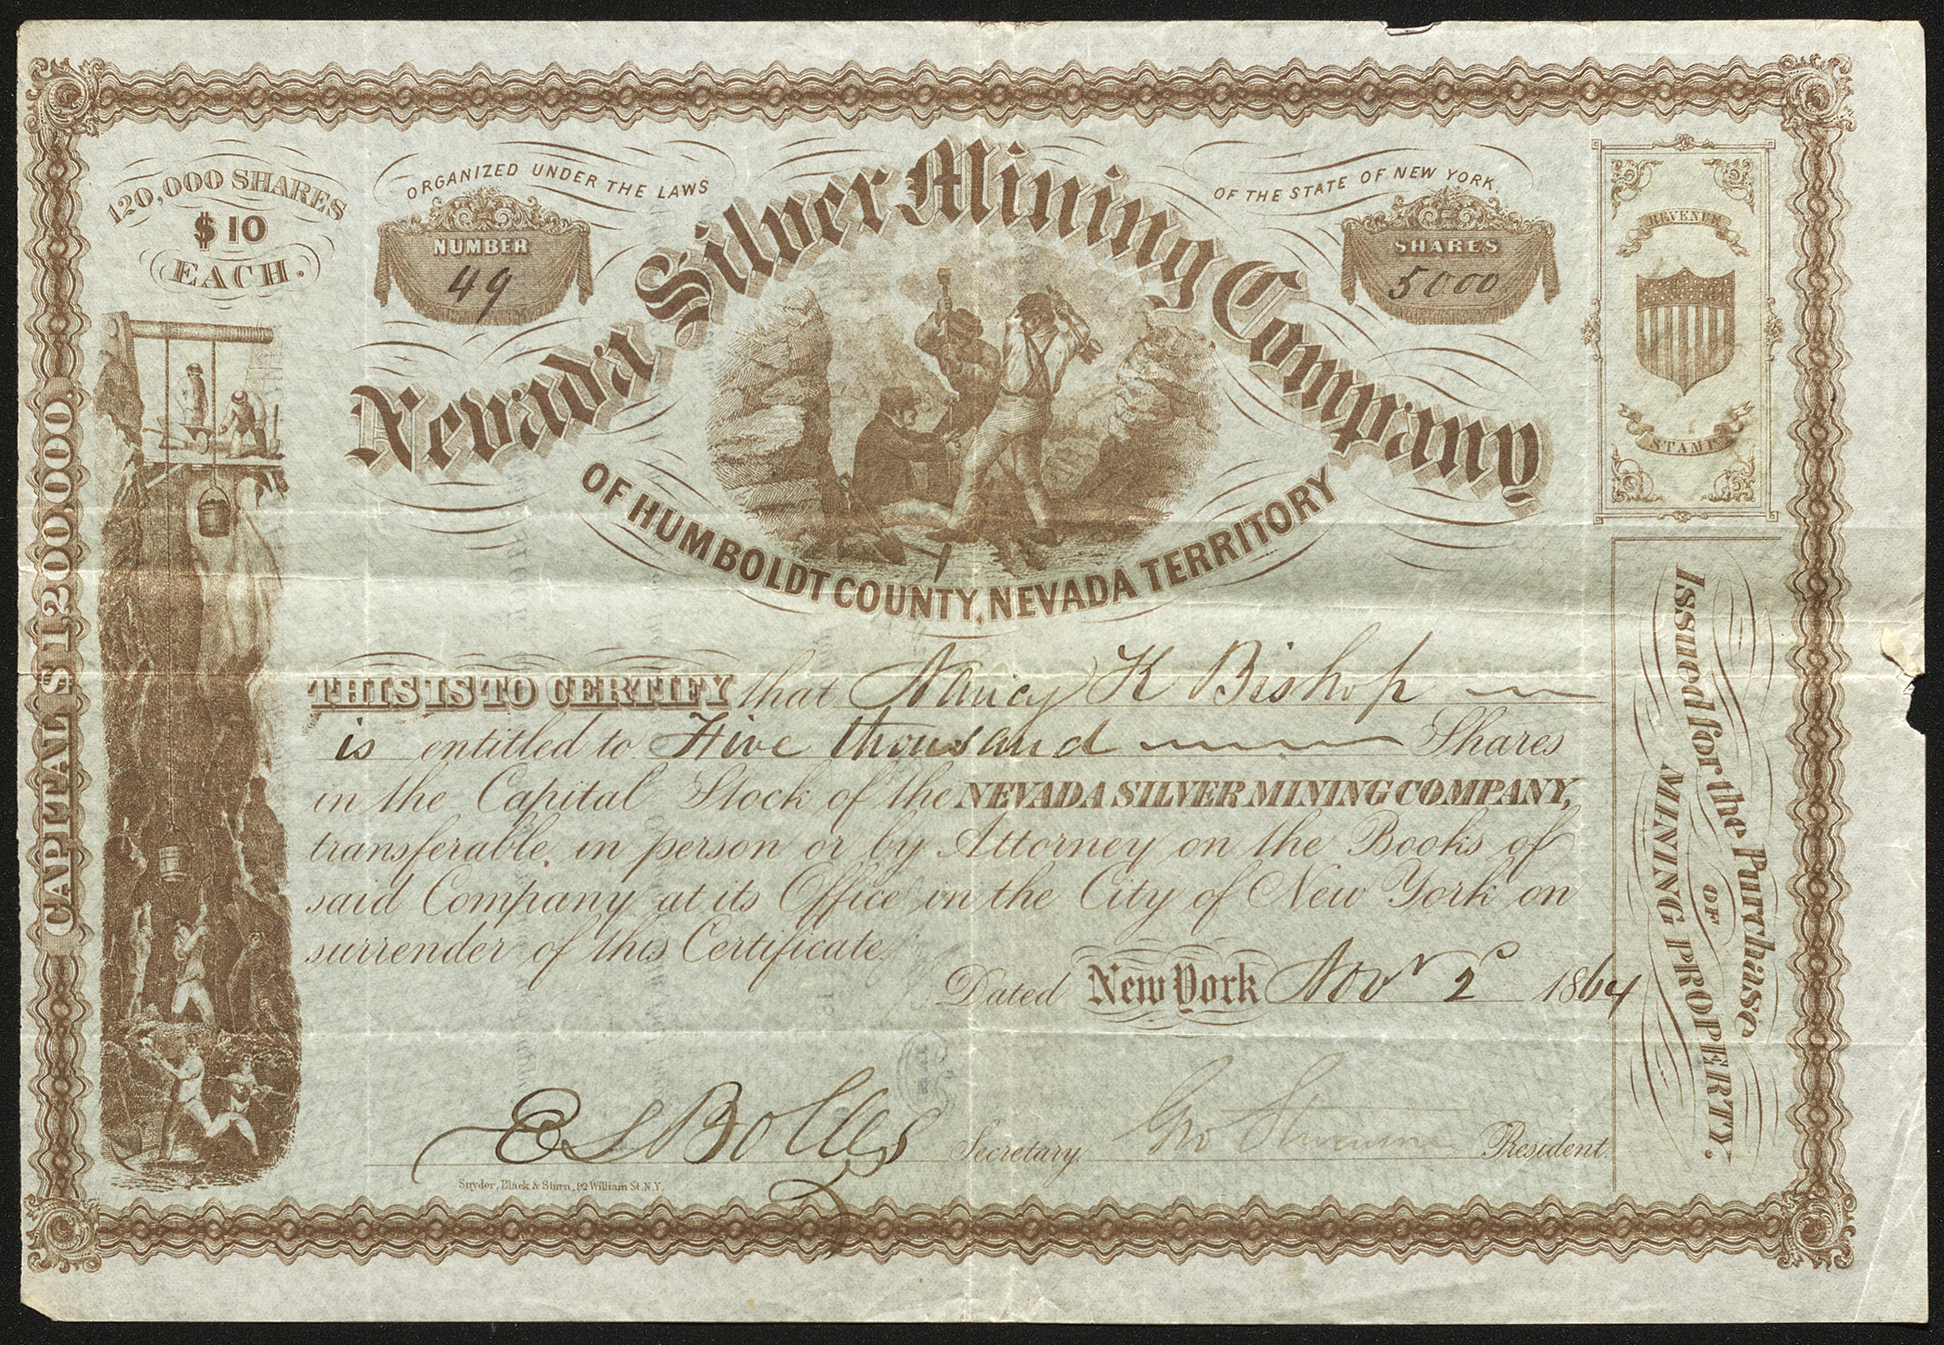 120,000 SHARES
$10
EACH.
ORGANIZED UNDER THE LAWS
OF THE STATE OF NEW YORK.
NUMBER
49
SHARES
5000
Nevada Silver Mining Company
OF HUMBOLDT COUNTY, NEVADA TERRITORY
REVENUE
STAMP
CAPITAL $1,200,000.
THIS IS TO CERTIFY that Nancy K Bishop
is entitled to Five thousand Shares
in the Capital Stock of the NEVADA SILVER MINING COMPANY,
transferable, in person or by Attorney on the Books of
said Company at its Office in the City of New York on
surrender of this Certificate.
Dated New York Nov 2 1864
E S Bolles Secretary. Geo President.
Snyder, Black & Sturn, 92 William St. N.Y.
Issued for the Purchase
OF
MINING PROPERTY.